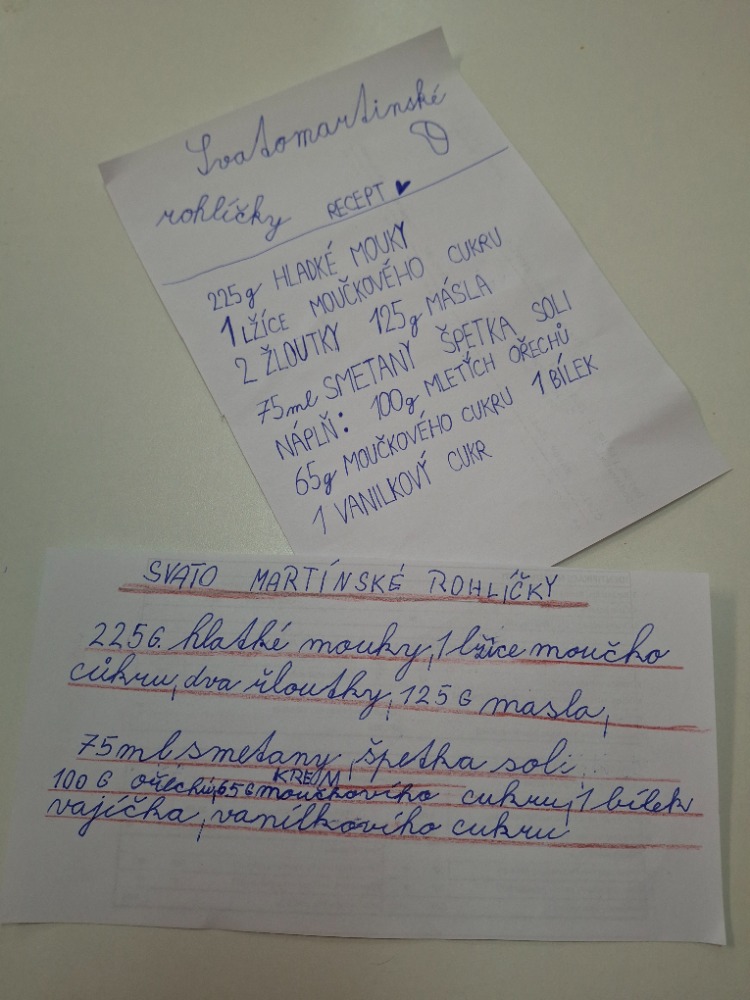 Svatomartinské
rohlíčky RECEPT
225g HLADKÉ MOUKY
1 LŽÍCE MOUČKOVÉHO CUKRU
2 ŽLOUTKY 125g MÁSLA
75ml SMETANY ŠPETKA SOLI
NÁPLŇ: 100g MLETÍCH OŘECHŮ
65g MOUČKOVÉHO CUKRU 1 BÍLEK
1 VANILKOVÝ CUKR
SVATO MARTÍNSKÉ ROHLÍČKY
225G. hlatké mouky, 1 lžíce moučko
cůkru, dva žloutky, 125 G masla,
75ml smetany, špetka soli,
KREJM
100 G ořechů, 65G moučkoviho cukru, 1 bílek
vajíčka, vanílkoviho cukru